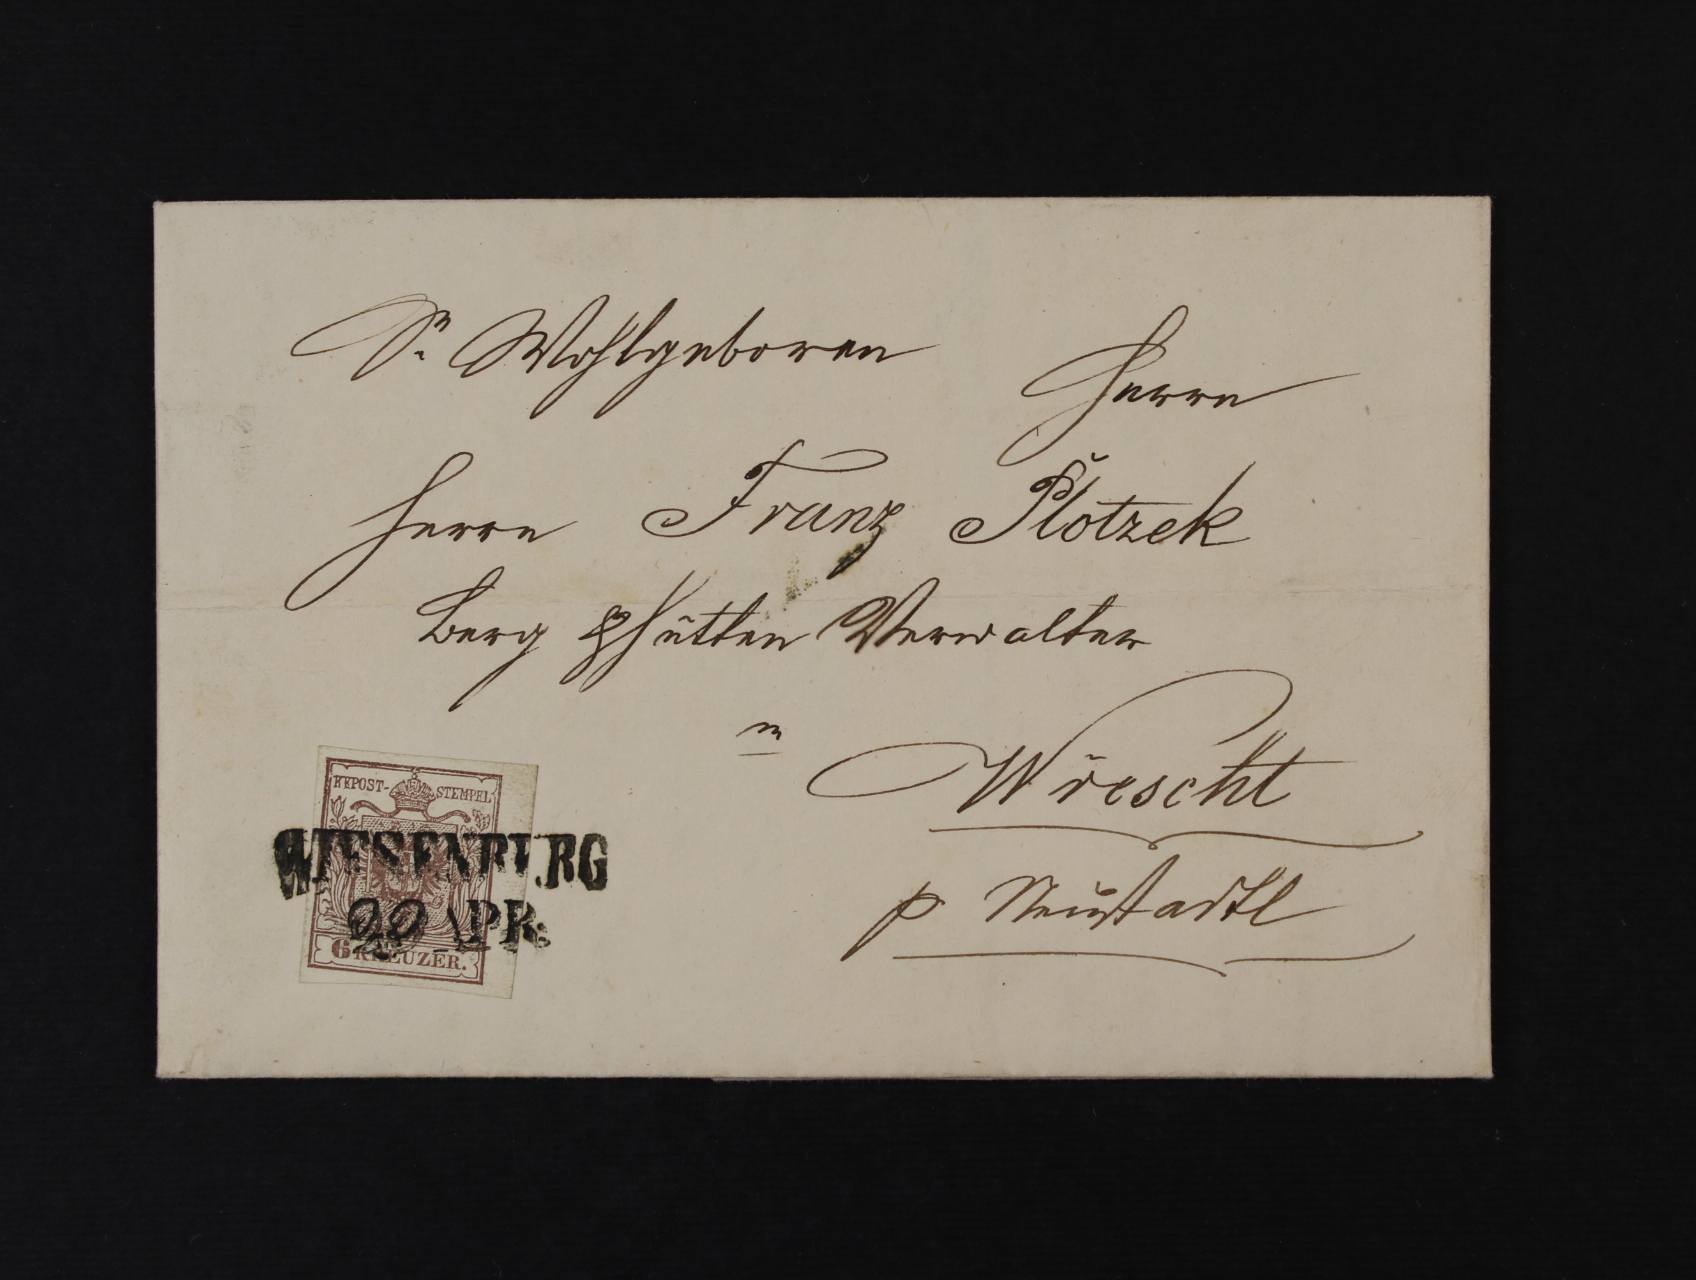 Sr Wohlgeboren
Herrn
Herrn Franz Plotzek
Berg & Hütten Verwalter
in
Wiescht
p Neustadtl
KKPOST-STEMPEL
WIESENBURG
22 APR.
6 KREUZER.